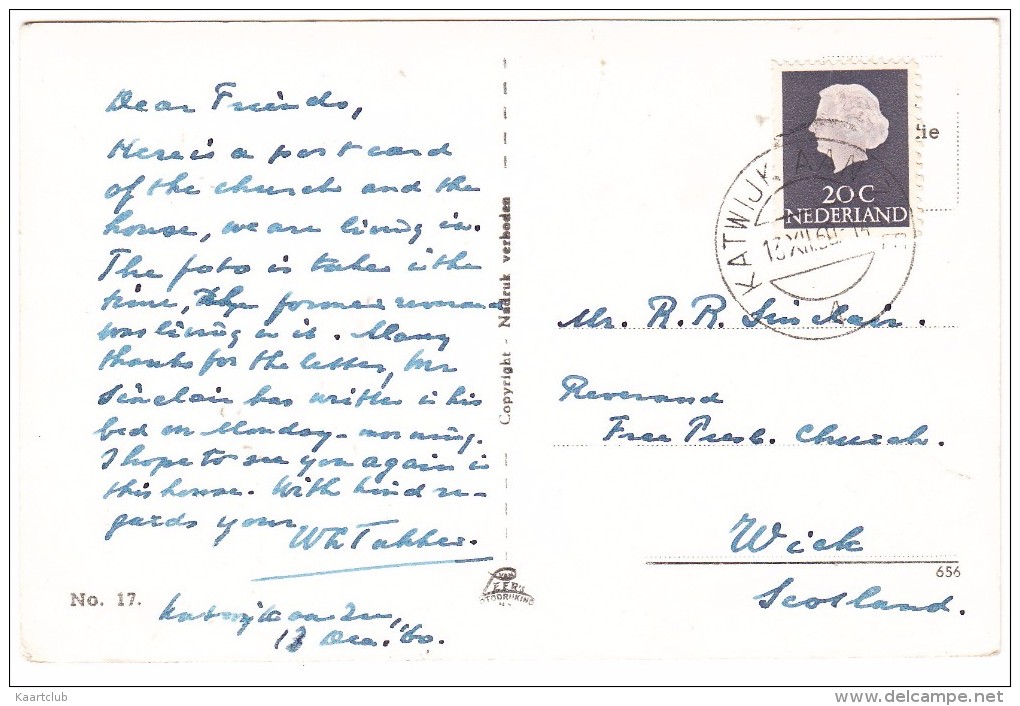 Dear Friends,
Here is a post card
of the church and the
house, we are living in.
The foto is taken i the
time, the former reverand
was living in it. Many
thanks for the letter, Mr
Sinclair has written i his
bed on Monday-morning.
I hope to see you again in
this house. With kind re-
gards your
Katwijk aan Zee,
Dec. '60.
No. 17.
Copyright - Nadruk verboden
VAN
20 C
NEDERLAND
KATWIJK AAN
XII.60
ie
Mr. R. R. Sinclair.
Reverand
Free Presb. Church.
Wick
Scotland.
656
Kaartclub
www.delcampe.net